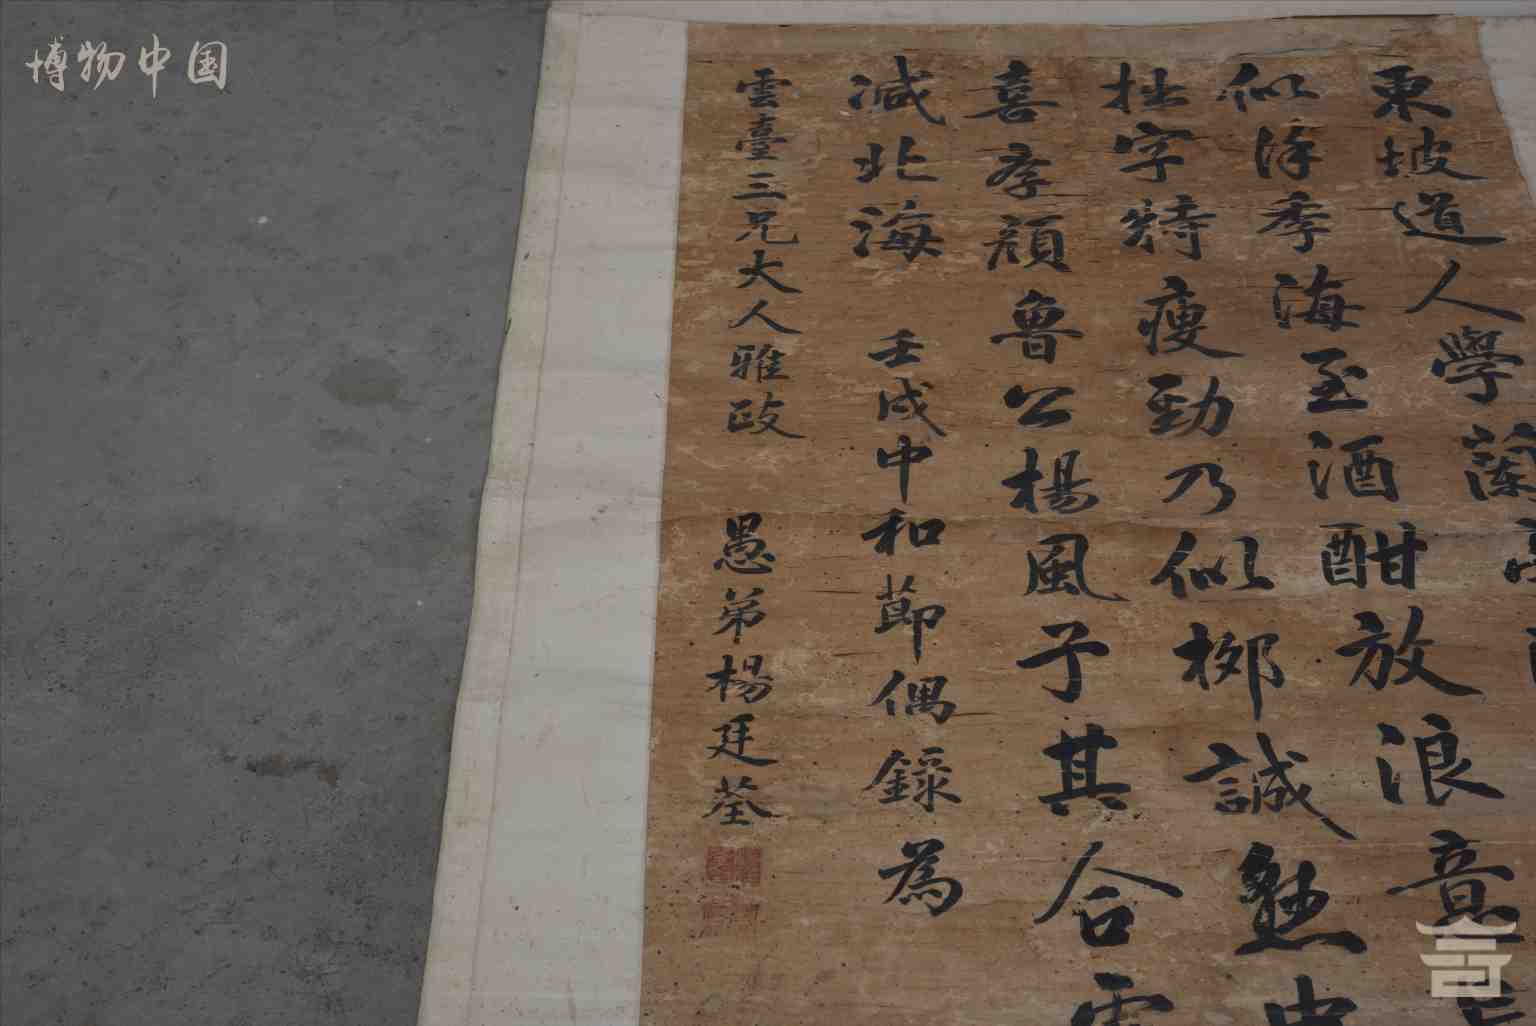 博物中国
東坡道人學蘭
似徐季海至酒酣放浪意
拙字特瘦勁乃似柳誠懸中
喜學顏魯公楊風子其合
減北海 壬戌中和節偶錄為
雲臺三兄大人雅政 愚弟楊廷荃